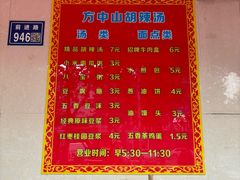 前进路
946
方中山胡辣汤
汤 类 面点类
精品胡辣汤 7元 招牌牛肉盒 6元
3元
元 煎包 5元
豆腐脑 3元 油饼 4元
五香豆沫 3元 油馍头 3元
经典原味豆浆 3元
红枣桂圆豆浆 4元 五香茶鸡蛋 1.5元
营业时间 早5:30-11:30